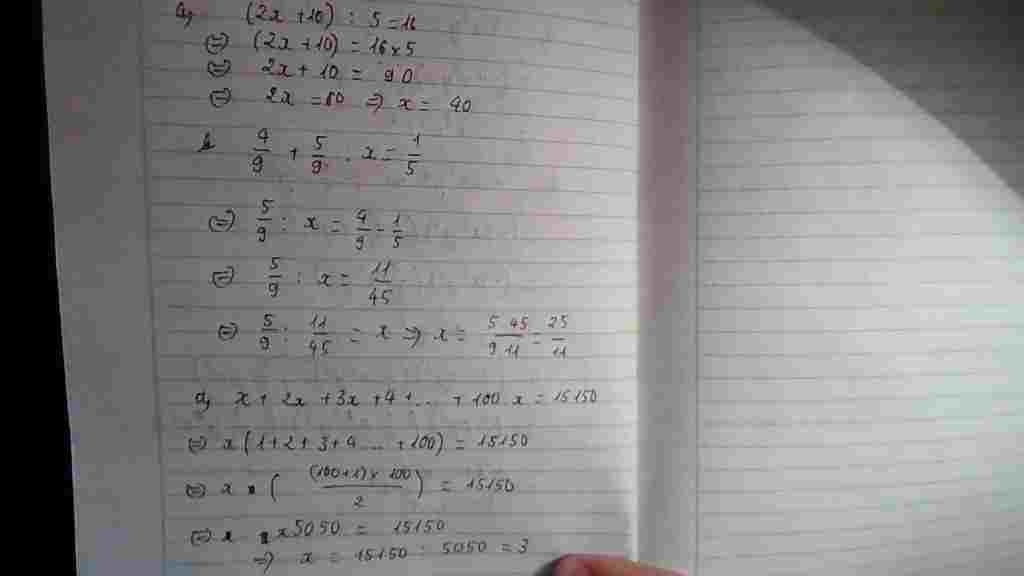 a, (2x + 10) : 5 = 16
(=) (2x + 10) = 16 x 5
(=) 2x + 10 = 90
(=) 2x = 80 => x = 40
b 4/9 + 5/9 . x = 1/5
(=) 5/9 : x = 4/9 - 1/5
(=) 5/9 : x = 11/45
(=) 5/9 : 11/45 = x => x = 5 45/9 11 = 25/11
d, x + 2x + 3x + 4 + ... + 100 . x = 15150
(=) x (1 + 2 + 3 + 4 ... + 100) = 15150
(=) x . ( (100 + 1) x 100/2 ) = 15150
(=) x x 5050 = 15150
=> x = 15150 : 5050 = 3